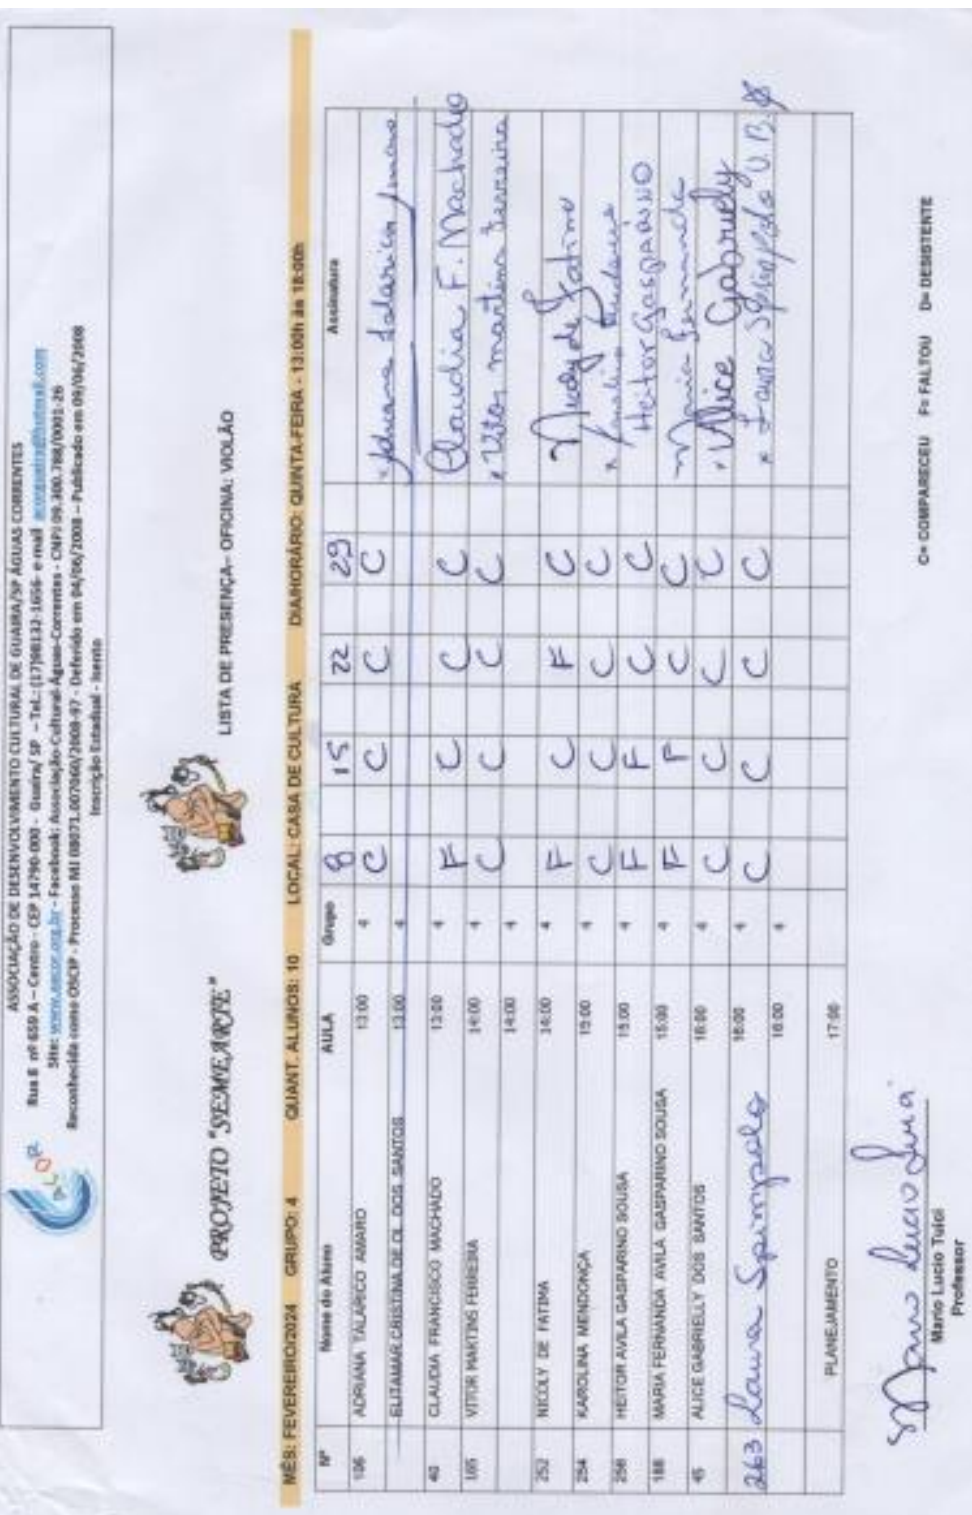 ASSOCIAÇÃO DE DESENVOLVIMENTO CULTURAL DE GUAIRA/SP ÁGUAS CORRENTES
Rua 8 nº 659 A – Centro - CEP 14790-000 - Guaira/ SP – Tel.: (17)98132-1656- e-mail
Site: - Facebook: Associação-Cultural-Águas-Correntes - CNPJ 09.300.788/0001-26
Reconhecida como OSCIP - Processo MJ 08071.007060/2008-97 - Deferido em 04/06/2008 – Publicado em 09/06/2008
Inscrição Estadual - Isento
PROJETO "SEMEARTE"
LISTA DE PRESENÇA– OFICINA: VIOLÃO
MÊS: FEVEREIRO/2024 GRUPO: 4 QUANT. ALUNOS: 10 LOCAL: CASA DE CULTURA DIA/HORÁRIO: QUINTA-FEIRA - 13:00h às 18:00h
Nº Nome do Aluno AULA Grupo 8 15 22 29 Assinatura
106 ADRIANA TALARICO AMARO 13:00 4 C C C C Adriana Talarico Amaro
ELITAMAR CRISTINA DE OL. DOS SANTOS 13:00 4
40 CLAUDIA FRANCISCO MACHADO 13:00 4 F C C C Claudia F. Machado
165 VITOR MARTINS FERREIRA 14:00 4 C C C C Vitor martins Ferreira
14:00 4
252 NICOLY DE FATIMA 14:00 4 F C F C Nicoly de Fatima
254 KAROLINA MENDONÇA 15:00 4 C C C C
256 HEITOR AVILA GASPARINO SOUSA 15:00 4 F F C C Heitor Gasparino
188 MARIA FERNANDA AVILA GASPARINO SOUSA 15:00 4 F F C C Maria Fernanda
45 ALICE GABRIELLY DOS SANTOS 16:00 4 C C C C Alice Gabrielly
263 Laura Spimpolo 16:00 4 C C C C Laura Spimpolo V. B.
16:00 4
PLANEJAMENTO 17:00
Mario Lucio Tuici
Professor
C= COMPARECEU F= FALTOU D= DESISTENTE